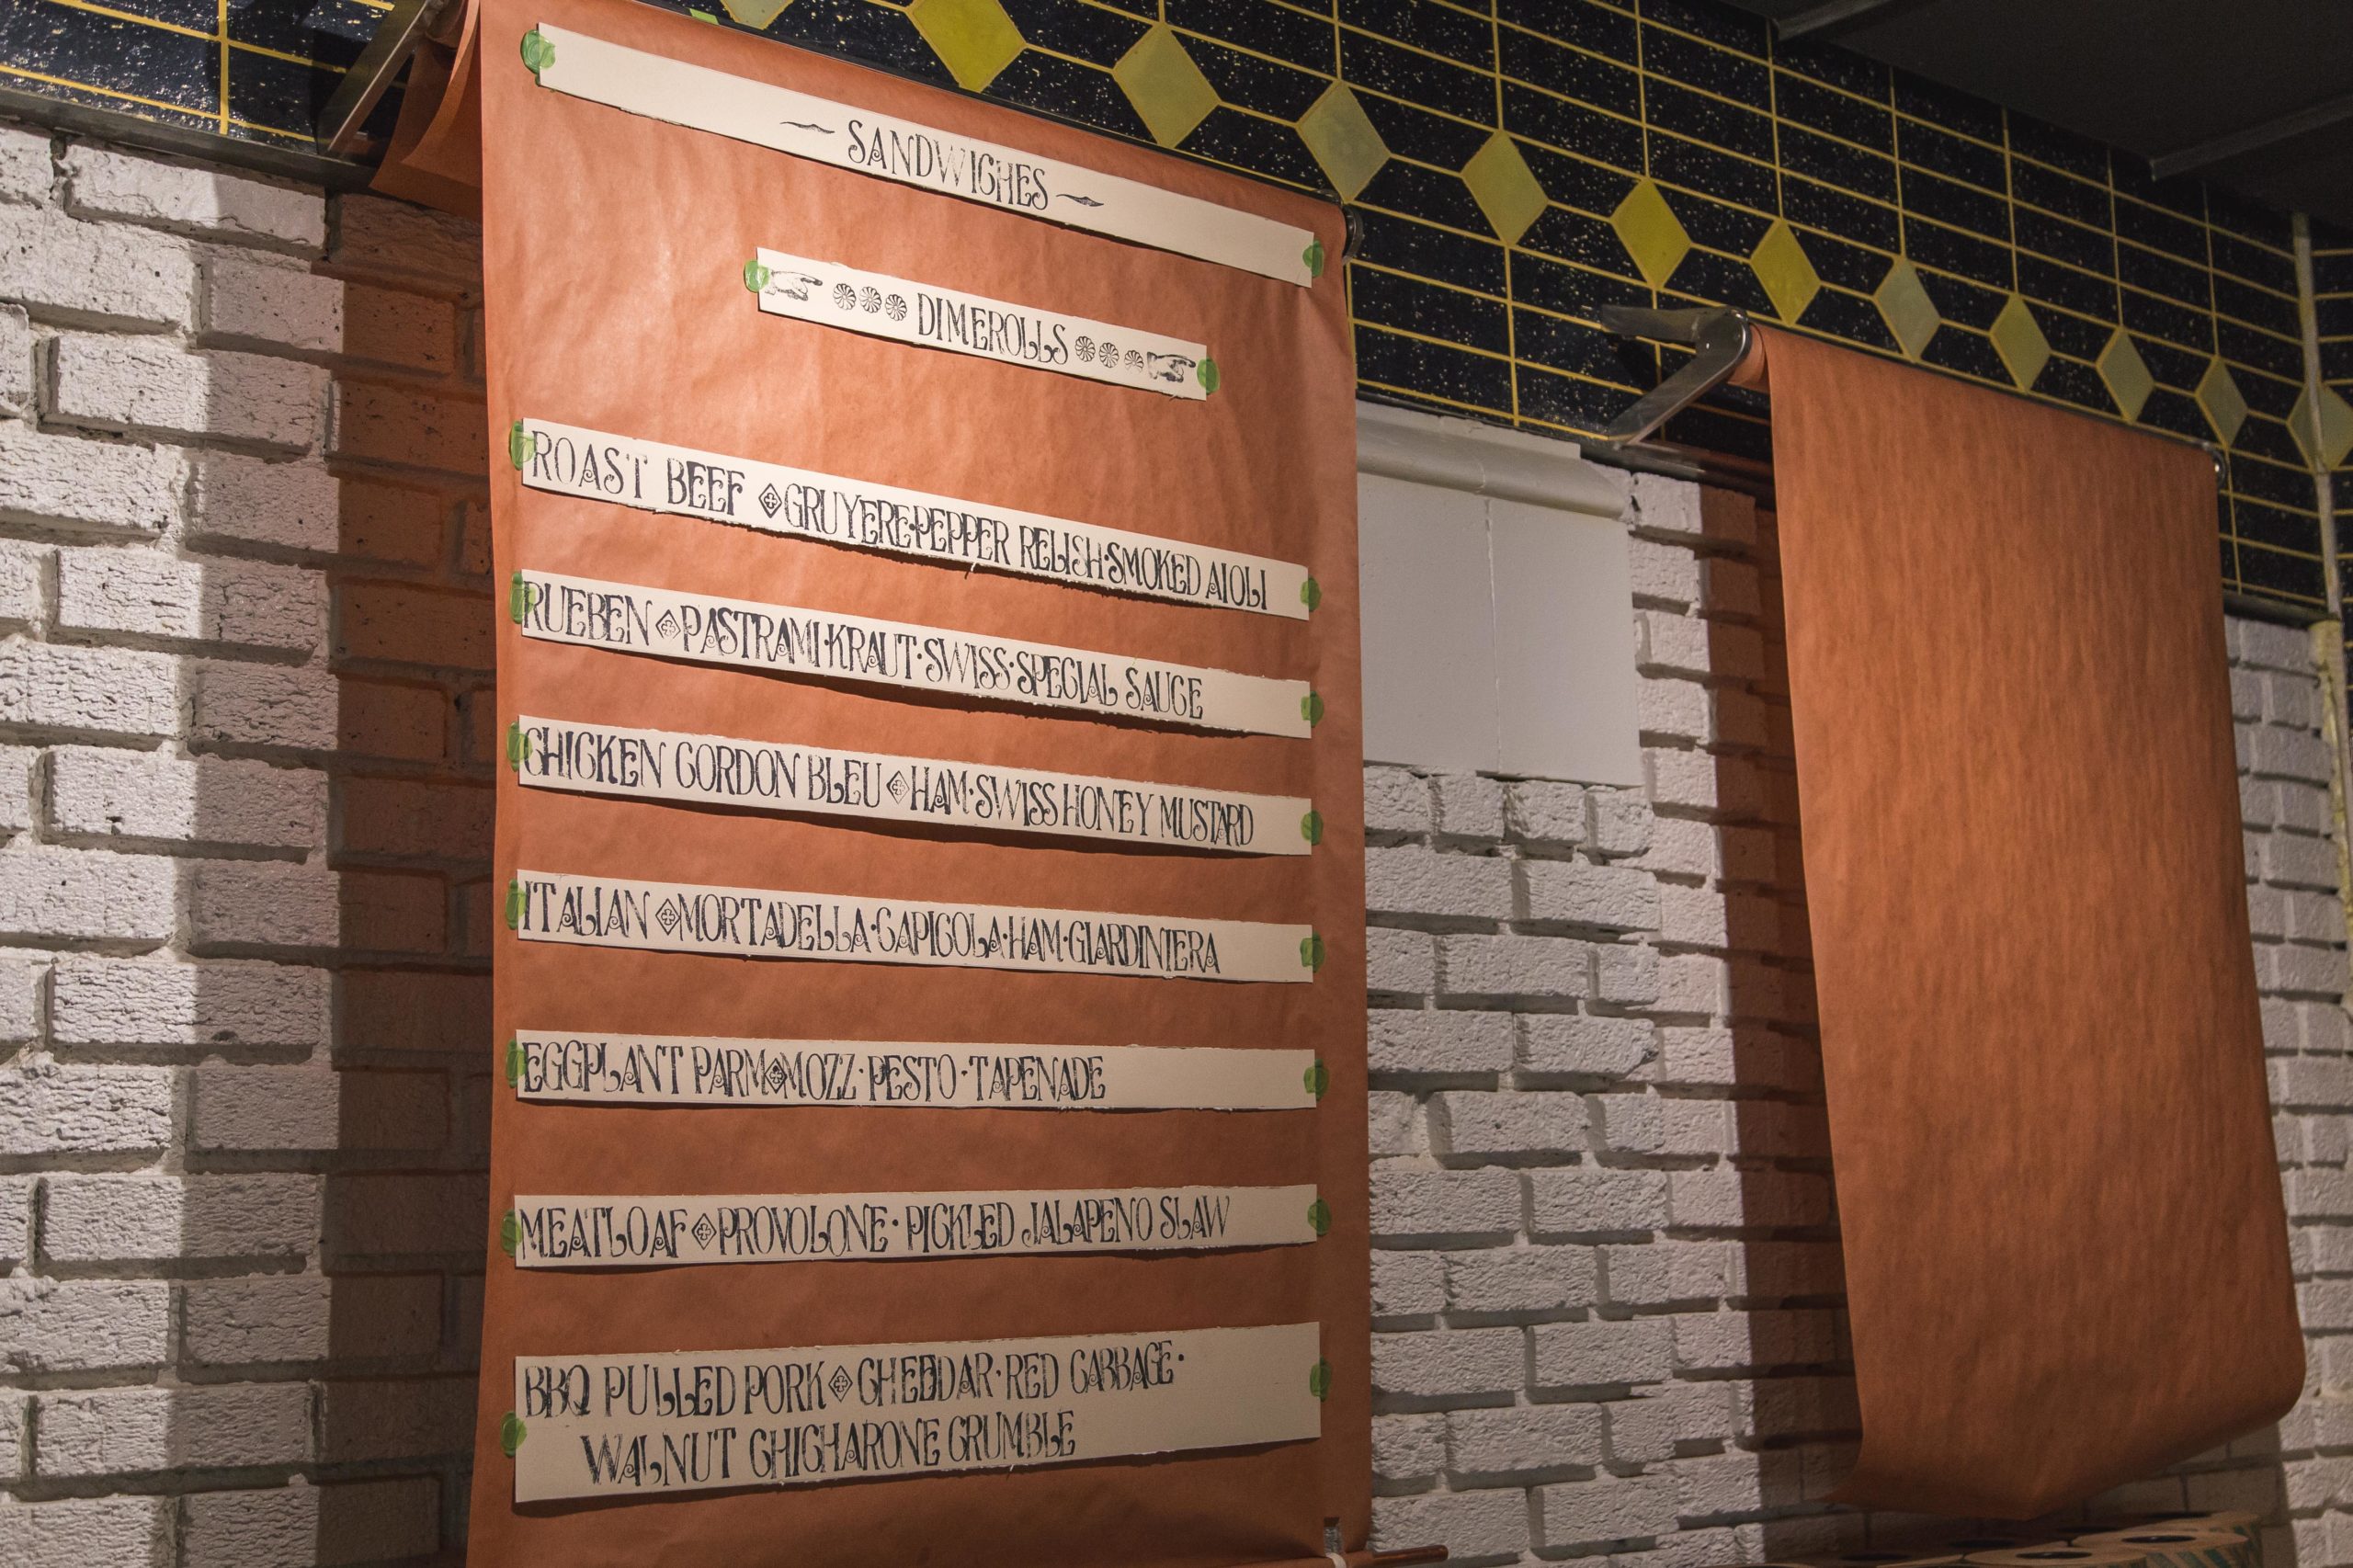 SANDWICHES
DIMEROLLS
ROAST BEEF GRUYERE·PEPPER RELISH·SMOKED AIOLI
RUEBEN PASTRAMI·KRAUT·SWISS·SPECIAL SAUCE
CHICKEN CORDON BLEU HAM·SWISS HONEY MUSTARD
ITALIAN MORTADELLA·CAPICOLA·HAM·GIARDINIERA
EGGPLANT PARM MOZZ·PESTO·TAPENADE
MEATLOAF PROVOLONE·PICKLED JALAPENO SLAW
BBQ PULLED PORK CHEDDAR·RED CABBAGE·
WALNUT CHICHARONE CRUMBLE